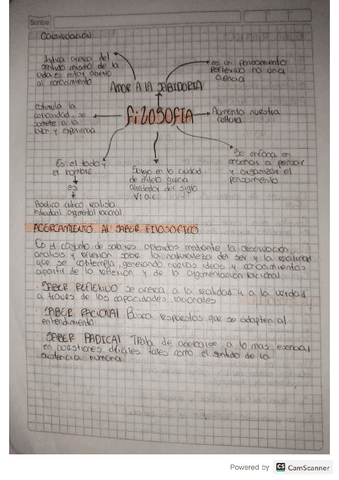 Scribe
Indica acerca del
sentido mismo de la
vida es estar abierto
al conocimiento
AMOR A LA SABIDURIA
es un pensamiento
reflexivo no una
ciencia
estimula la
curiosidad, se
somete a la
labor y experiencia
FILOSOFIA
Aumenta nuestra
cultura
Se enfoca en
enseñar a pensar
y organizar el
pensamiento
Es el todo y
el hombre
es
Poetico critico realista
racional
Surgio en la ciudad
de mileto grecia
alrededor del siglo
VI a.c
ACERCAMIENTO AL SABER FILOSOFICO
Es el conjunto de saberes obtenidos mediante la observacion,
analisis y reflexion sobre la naturaleza del ser y la realidad
que se contempla, generando nuevas ideas y conocimientos
apartir de la reflexion y de la argumentacion racional
SABER REFLEXIVO se acerca a la realidad y a la verdad
a traves de las capacidades racionales
SABER RACIONAL Busca respuestas que se adapten al
entendimiento
SABER RADICAL Trata de acercarse a lo mas esencial
en cuestiones tales como el sentido de la
existencia humana
Powered by CS CamScanner